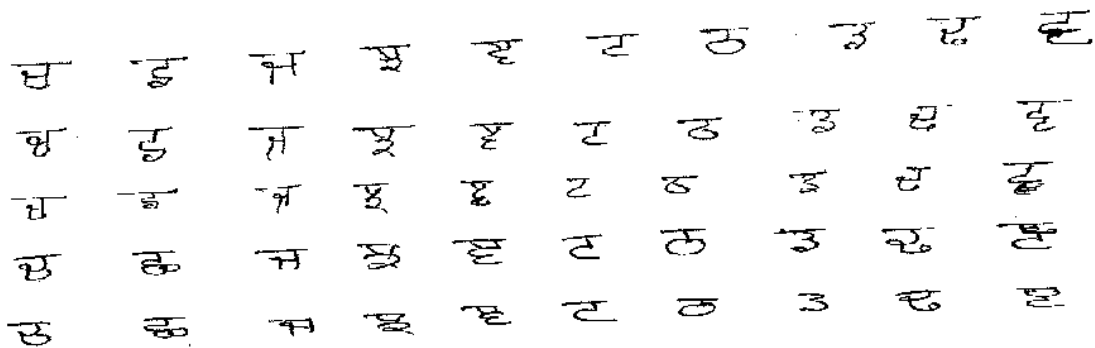 ਚ ਛ ਜ ਝ ਞ ਟ ਠ ਡ ਢ ਣ
ਚ ਛ ਜ ਝ ਞ ਟ ਠ ਡ ਢ ਣ
ਚ ਛ ਜ ਝ ਞ ਟ ਠ ਡ ਢ ਣ
ਚ ਛ ਜ ਝ ਞ ਟ ਠ ਡ ਢ ਣ
ਚ ਛ ਜ ਝ ਞ ਟ ਠ ਡ ਢ ਣ